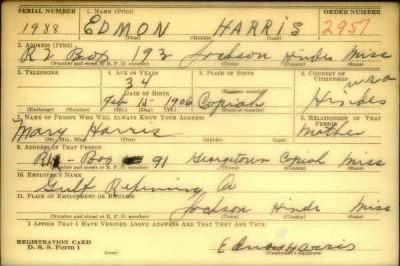 SERIAL NUMBER 1. NAME (Print) ORDER NUMBER
1988 EDMON HARRIS 2951
2. ADDRESS (Print)
R2 Box 193 Jackson Hinds Miss
(Number and street or R. F. D. number) (Town) (County) (State)
3. TELEPHONE 4. AGE IN YEARS 5. PLACE OF BIRTH 6. COUNTRY OF CITIZENSHIP
34 Copiah USA
DATE OF BIRTH
Feb 15 - 1906 Hinds
(Exchange) (Number) (Mo.) (Day) (Yr.) (State or country)
7. NAME OF PERSON WHO WILL ALWAYS KNOW YOUR ADDRESS 8. RELATIONSHIP OF THAT PERSON
Mary Harris Mother
(Mr., Mrs., Miss) (First) (Middle) (Last)
9. ADDRESS OF THAT PERSON
Box 91 Georgetown Copiah Miss
(Number and street or R. F. D. number) (Town) (County) (State)
10. EMPLOYER'S NAME
Gulf Refining Co
11. PLACE OF EMPLOYMENT OR BUSINESS
Jackson Hinds Miss
(Number and street or R. F. D. number) (Town) (County) (State)
I AFFIRM THAT I HAVE VERIFIED ABOVE ANSWERS AND THAT THEY ARE TRUE.
REGISTRATION CARD
D. S. S. Form 1 Edmon Harris